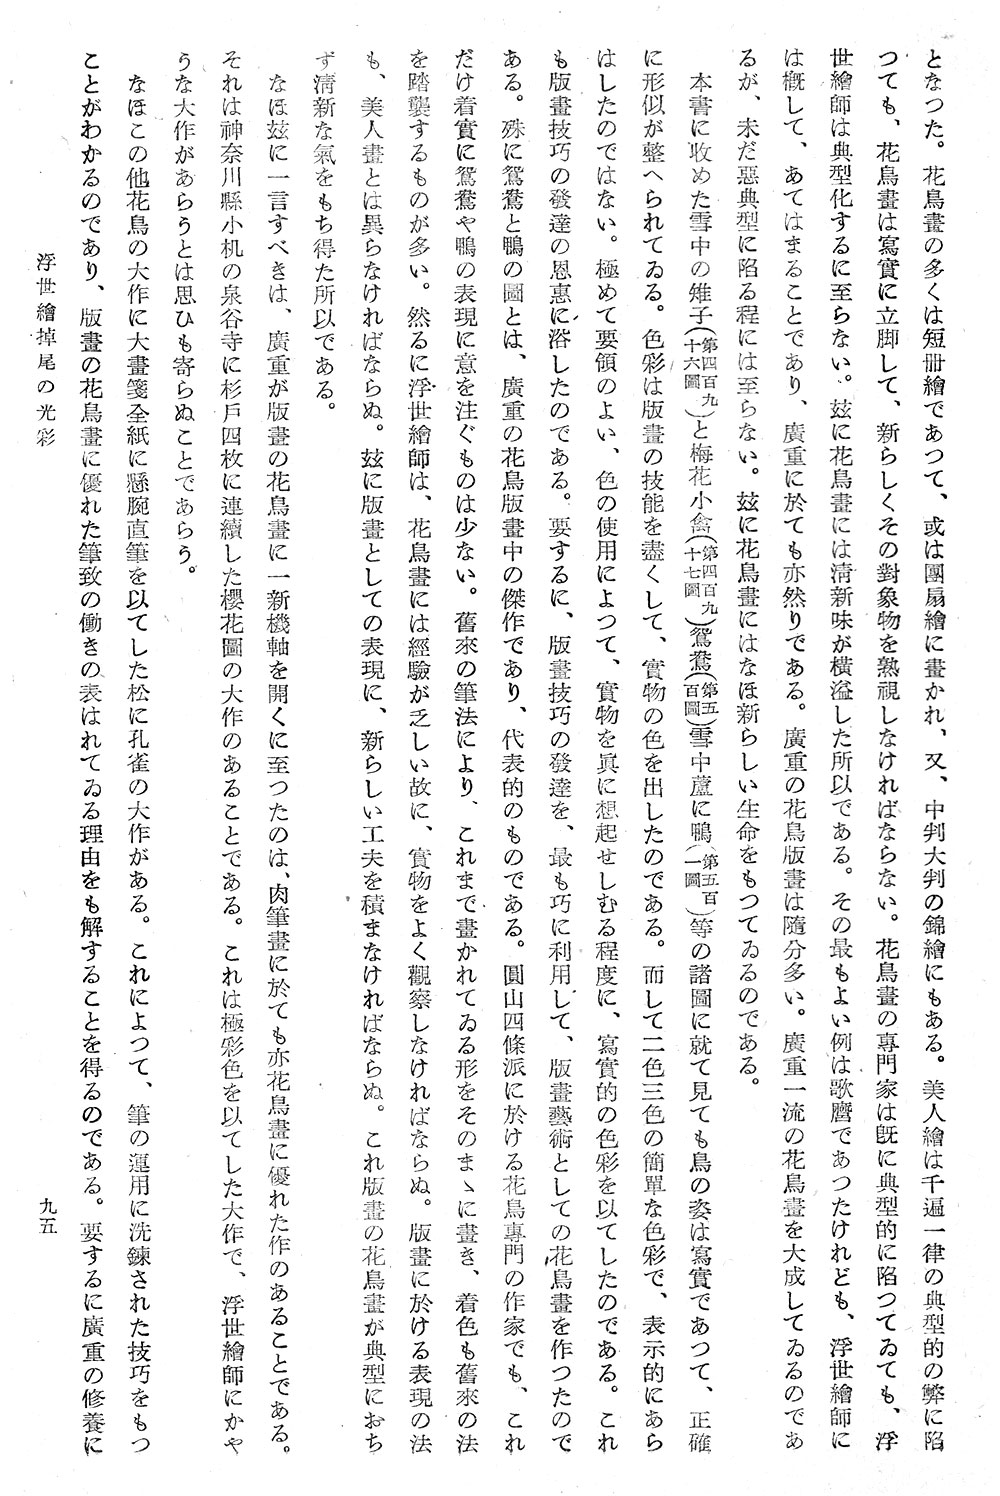 となつた。花鳥畫の多くは短册繪であつて、或は團扇繪に畫かれ、又、中判大判の錦繪にもある。美人繪は千遍一律の典型的の弊に陷
つても、花鳥畫は寫實に立脚して、新らしくその對象物を熟視しなければならない。花鳥畫の專門家は既に典型的に陷つてゐても、浮
世繪師は典型化するに至らない。玆に花鳥畫には清新味が橫溢した所以である。その最もよい例は歌麿であつたけれども、浮世繪師に
は概して、あてはまることであり、廣重に於ても亦然りである。廣重の花鳥版畫は隨分多い。廣重一流の花鳥畫を大成してゐるのであ
るが、未だ惡典型に陷る程には至らない。玆に花鳥畫にはなほ新らしい生命をもつてゐるのである。
本書に收めた雪中の雉子(第四百九十六圖)と梅花小禽(第四百九十七圖)鴛鴦(第五百圖)雪中蘆に鴨(第五百一圖)等の諸圖に就て見ても鳥の姿は寫實であつて、正確
に形似が整へられてゐる。色彩は版畫の技能を盡くして、實物の色を出したのである。而して二色三色の簡單な色彩で、表示的にあら
はしたのではない。極めて要領のよい、色の使用によつて、實物を眞に想起せしむる程度に、寫實的の色彩を以てしたのである。これ
も版畫技巧の發達の恩惠に浴したのである。要するに、版畫技巧の發達を、最も巧に利用して、版畫藝術としての花鳥畫を作つたので
ある。殊に鴛鴦と鴨の圖とは、廣重の花鳥版畫中の傑作であり、代表的のものである。圓山四條派に於ける花鳥專門の作家でも、これ
だけ着實に鴛鴦や鴨の表現に意を注ぐものは少ない。舊來の筆法により、これまで畫かれてゐる形をそのまゝに畫き、着色も舊來の法
を踏襲するものが多い。然るに浮世繪師は、花鳥畫には經驗が乏しい故に、實物をよく觀察しなければならぬ。版畫に於ける表現の法
も、美人畫とは異らなければならぬ。玆に版畫としての表現に、新らしい工夫を積まなければならぬ。これ版畫の花鳥畫が典型におち
ず清新な氣をもち得た所以である。
なほ玆に一言すべきは、廣重が版畫の花鳥畫に一新機軸を開くに至つたのは、肉筆畫に於ても亦花鳥畫に優れた作のあることである。
それは神奈川縣小机の泉谷寺に杉戸四枚に連續した櫻花圖の大作のあることである。これは極彩色を以てした大作で、浮世繪師にかや
うな大作があらうとは思ひも寄らぬことであらう。
なほこの他花鳥の大作に大畫箋全紙に懸腕直筆を以てした松に孔雀の大作がある。これによつて、筆の運用に洗鍊された技巧をもつ
ことがわかるのであり、版畫の花鳥畫に優れた筆致の働きの表はれてゐる理由をも解することを得るのである。要するに廣重の修養に
浮世繪掉尾の光彩
九五